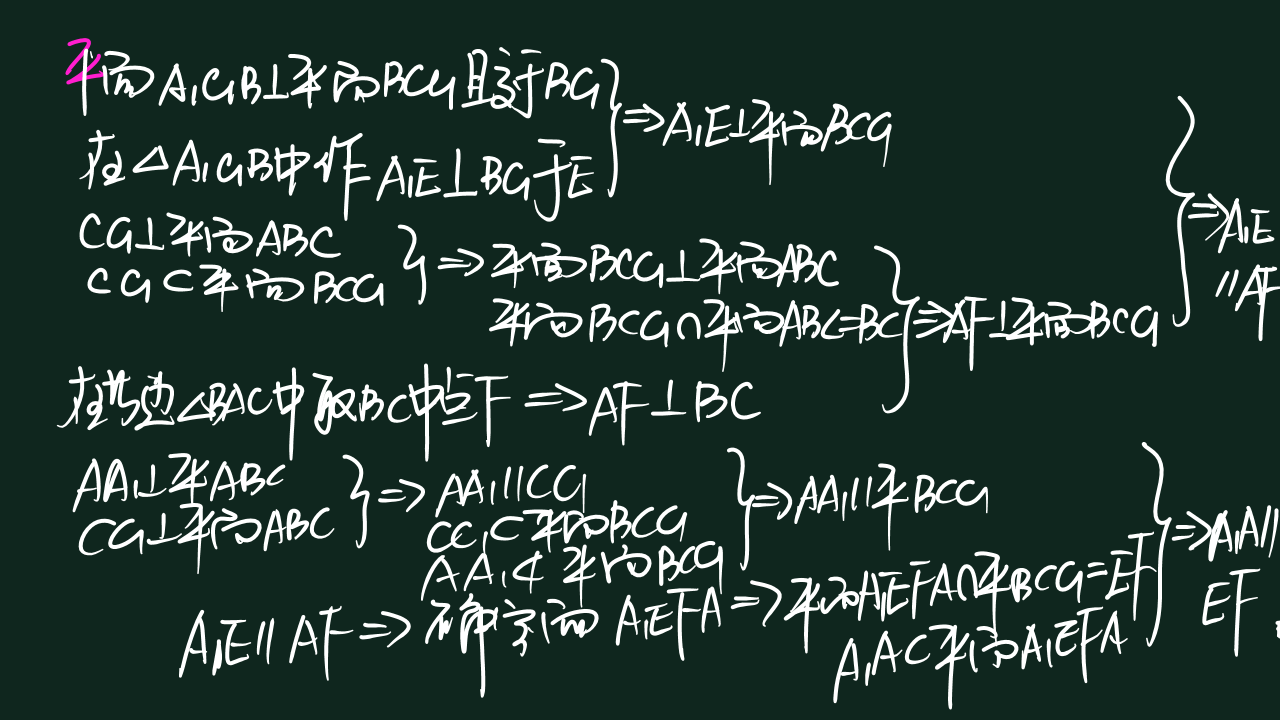 平面A₁C₁B⊥平面BCC₁且交于BC₁
在△A₁C₁B中作A₁E⊥BC₁于E
} ⇒A₁E⊥平面BCC₁
CC₁⊥平面ABC
CC₁⊂平面BCC₁
} ⇒ 平面BCC₁⊥平面ABC
平面BCC₁∩平面ABC=BC
在等边△BAC中取BC中点F ⇒AF⊥BC
} ⇒AF⊥平面BCC₁
} ⇒A₁E
//AF
AA₁⊥平ABC
CC₁⊥平面ABC
} ⇒ AA₁//CC₁
CC₁⊂平面BCC₁
AA₁⊄平面BCC₁
} ⇒AA₁//平BCC₁
A₁E//AF⇒确定面A₁EFA⇒平面A₁EFA∩平BCC₁=EF
A₁A⊂平面A₁EFA
} ⇒A₁A//
EF